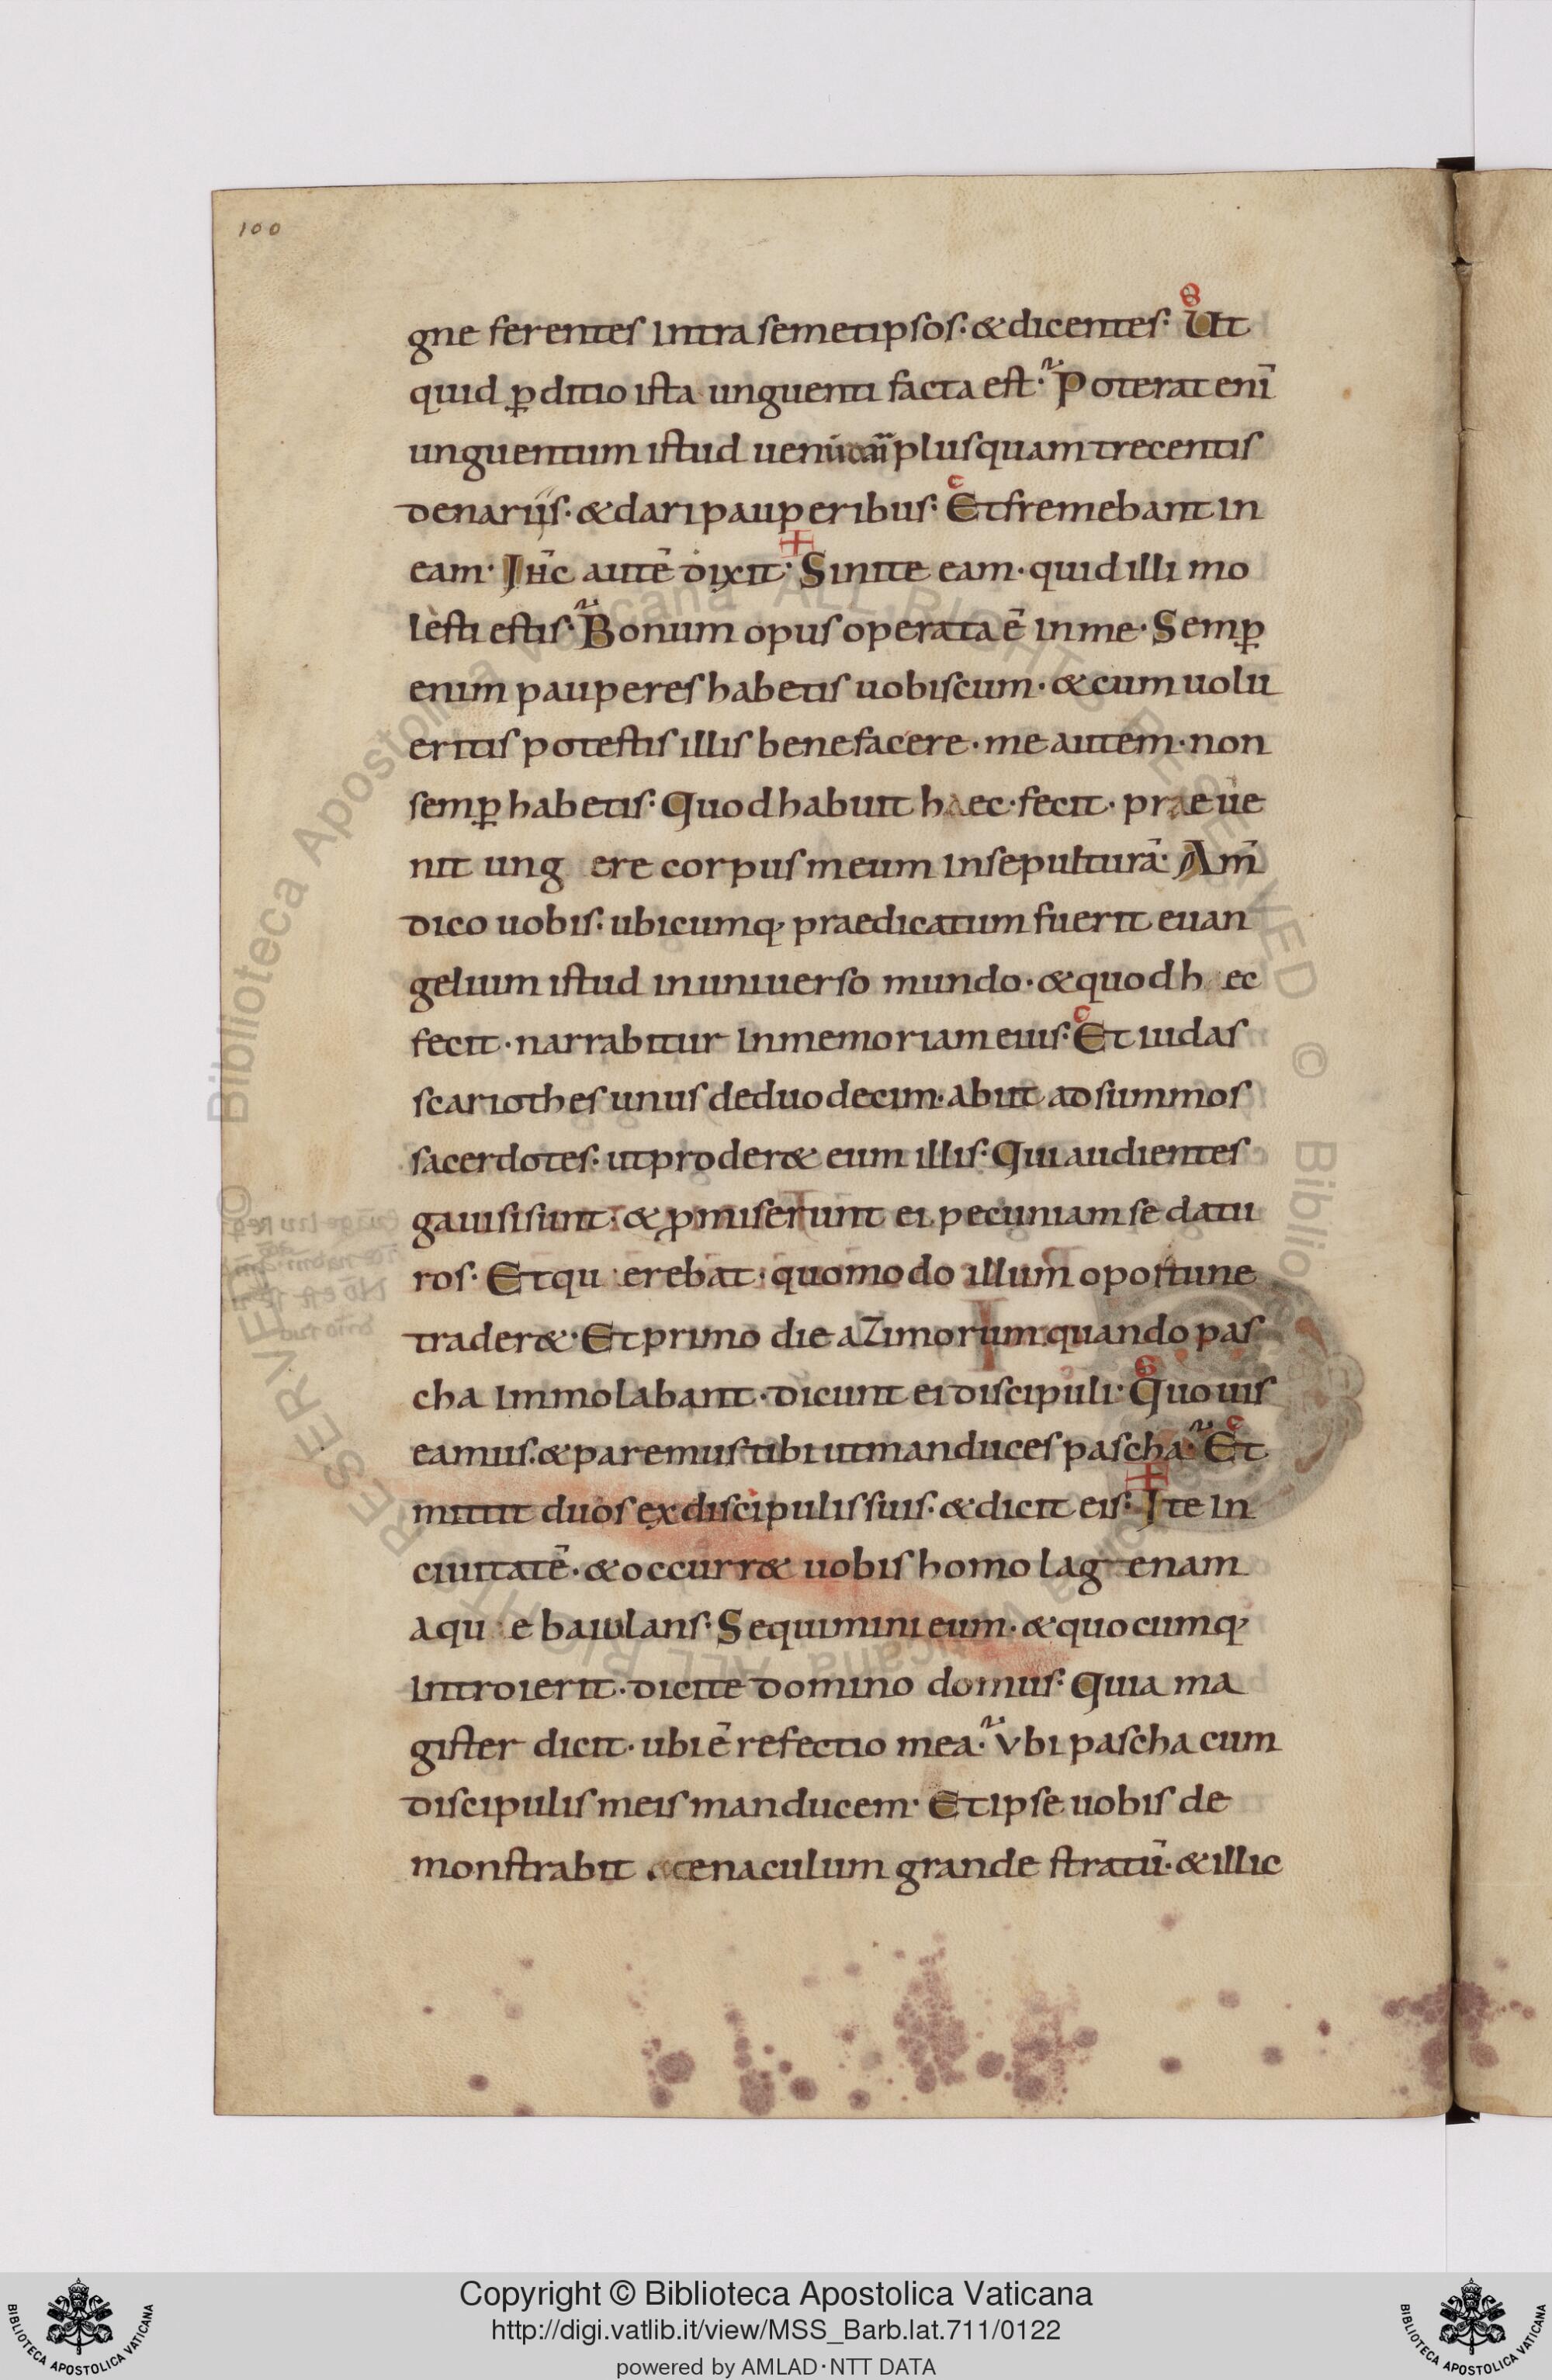 100
gne ferentes intra semetipsos. & dicentes. Ut
quid p̱ditio ista unguenti facta est. Poterat enī
unguentum istud plusquam trecentis
denariis. & dari pauperibus. Et fremebant in
eam. Ihc̄ autē dixit. Sinite eam. quid illi mo
lesti estis. Bonum opus operata ē in me. Semp̱
enim pauperes habetis uobiscum. & cum uolu
eritis potestis illis benefacere. me autem. non
semp̱ habetis. Quod habuit haec. fecit. praeue
nit ung ere corpus meum in sepulturā. Am̄
dico uobis. ubicumq; praedicatum fuerit euan
gelium istud in uniuerso mundo. & quod h ec
fecit. narrabitur in memoriam eius. Et iudas
scariothes unus de duodecim. abiit ad summos
sacerdotes. ut proder& eum illis. Qui audientes
gauisi sunt. & ꝓmiserunt ei pecuniam se datu
ros. Et qu erebat. quomodo illum oportune
trader&. Et primo die azimorum quando pas
cha immolabant. dicunt ei discipuli. Quo uis
eamus. & paremus tibi ut manduces pascha. Et
mittit duos ex discipulis suis. & dicit eis. Ite in
ciuitatē. & occurr& uobis homo lag enam
aqu e baiulans. Sequimini eum. & quocumq;
introierit. dicite domino domus. Quia ma
gister dicit. ubi ē refectio mea. Vbi pascha cum
discipulis meis manducem. Et ipse uobis de
monstrabit cenaculum grande stratū. & illic
Copyright © Biblioteca Apostolica Vaticana
http://digi.vatlib.it/view/MSS_Barb.lat.711/0122
powered by AMLAD·NTT DATA
BIBLIOTECA APOSTOLICA VATICANA
BIBLIOTECA APOSTOLICA VATICANA